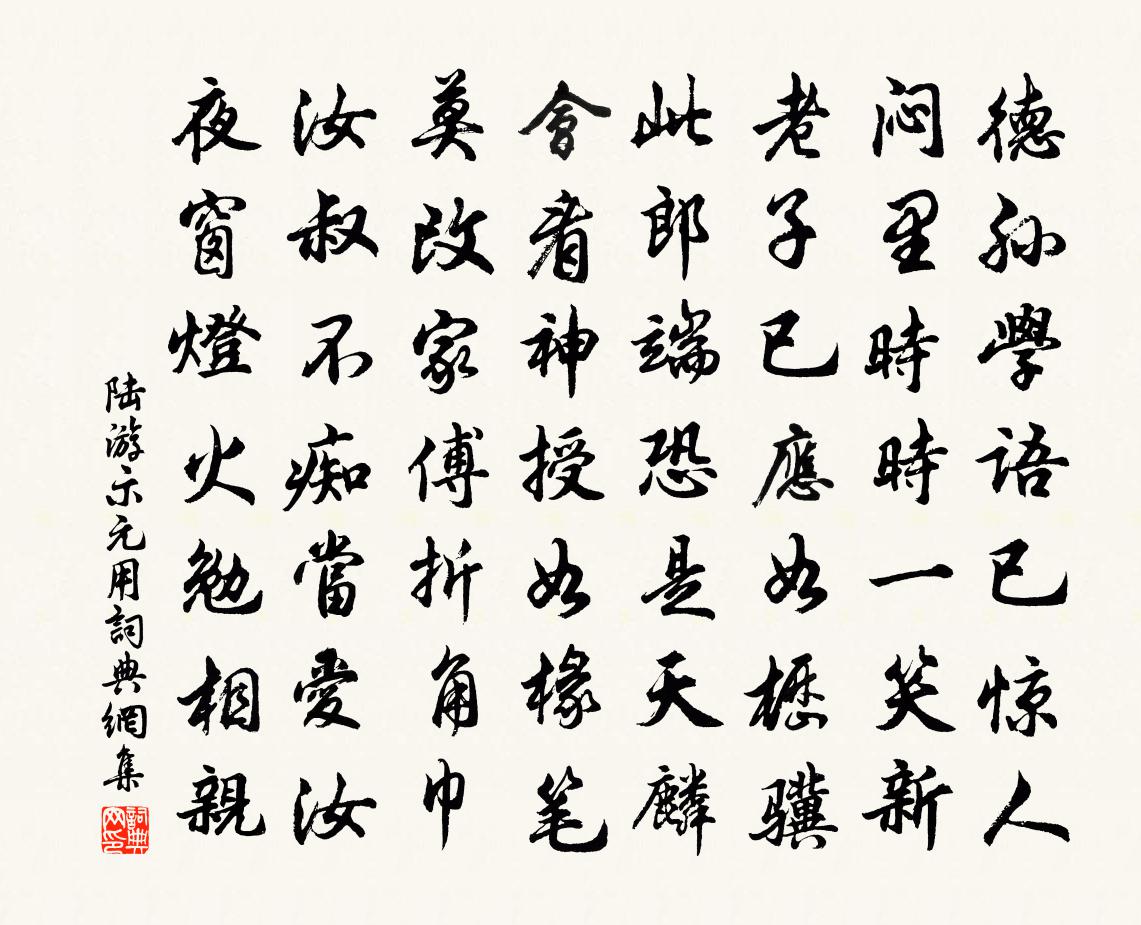 德孙學語已惊人
闷里時時一笑新
老子已應如櫪骥
此郎端恐是天麟
會看神授如椽笔
莫改家傅折角巾
汝叔不痴當愛汝
夜窗燈火勉相親
陆游示元用詞典網集
詞典網印